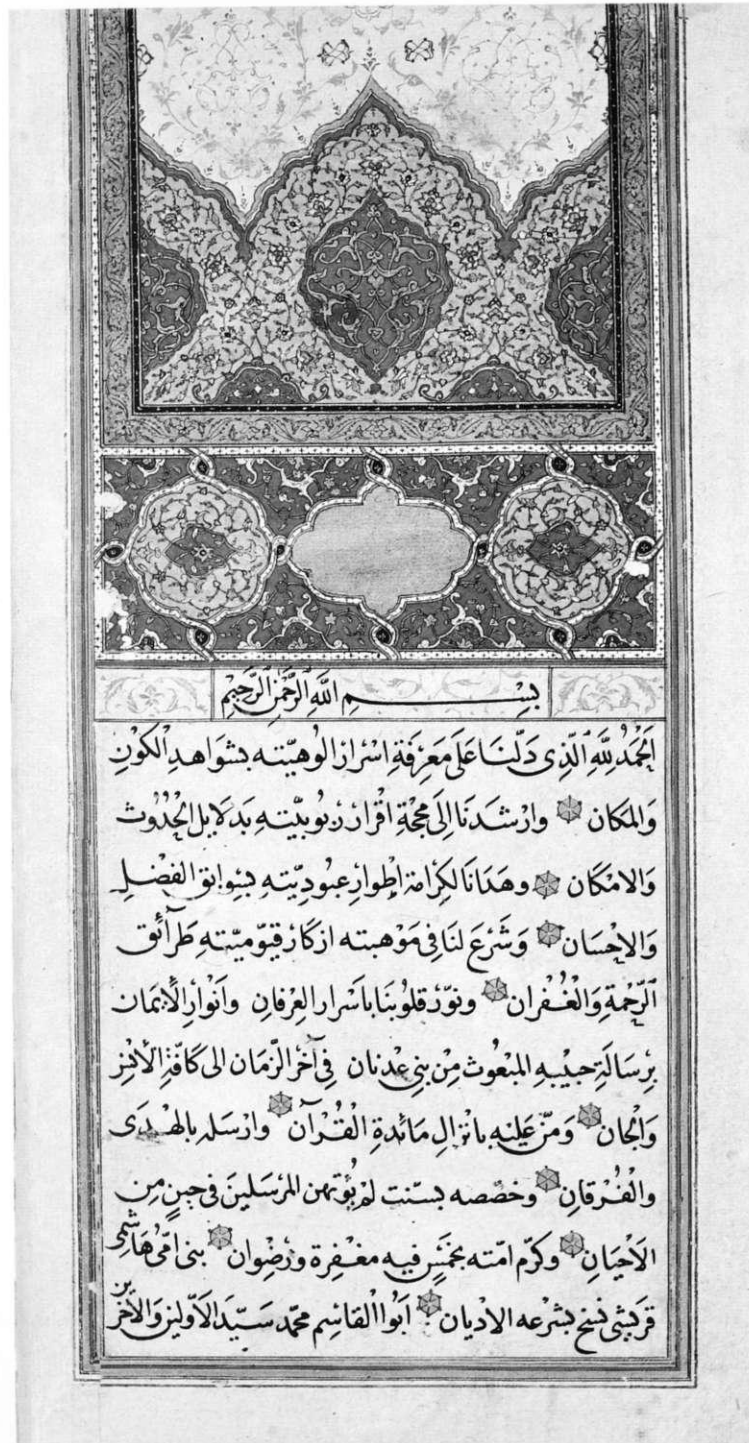 بِسْمِ اللَّهِ الرَّحْمَنِ الرَّحِيمِ
اَلْحَمْدُ لِلّٰهِ الَّذِى دَلَّنَا عَلَى مَعْرِفَةِ اَسْرَارِ الوهيّته بشواهدِ الْكَوْنِ
وَالمَكان وارْشَدَنَا اِلَى محجّة اقْرارِ رُبُوبيّته بدَلايل الْحُدُوث
وَالامْكَان وهَدَانَا لكرامة اطوار عبوديّته بسَوابق الفضْلِ
وَالاِحْسَان وَشَرَعَ لنَا فِى مَوْهبته ازكار قيّوميّته طَرآئق
اَلرَّحْمَةِ وَالْغُفْران ونوّر قلوبنا باَسْرار العِرْفانِ وانْوارِ الْاِيمَان
بِرِسَالَةِ حبيبِهِ المبْعُوث مِنْ بنِى عدْنان فِى آخر الزّمان الى كَافّةِ الْاِنْسِ
وَالْجان وَمنّ علَيْهِ بانْزالِ مَائدةِ الْقُرآن وارْسَله بالهُدَى
والْفُرقانِ وخصّصه بستّت لَمْ يُؤتهن المرْسَلينَ فى حينٍ مِن
الاَحْيَانِ وكرّم امّته بخمْسٍ فيه مغْفرة ورضْوان نبى امّى هَاشمى
قرَيشى نسَخ بشرْعه الاديان اَبُوا الْقاسِم محمّد سَيّدَ الْاَوّلين وَالْاخرين